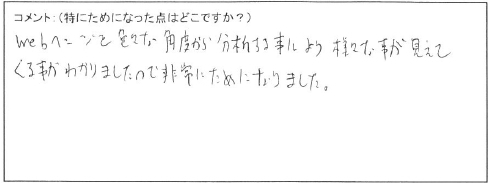 コメント：（特にためになった点はどこですか？）
webページを色々な角度から分析する事により様々な事が見えて
くる事がわかりましたので非常にためになりました。